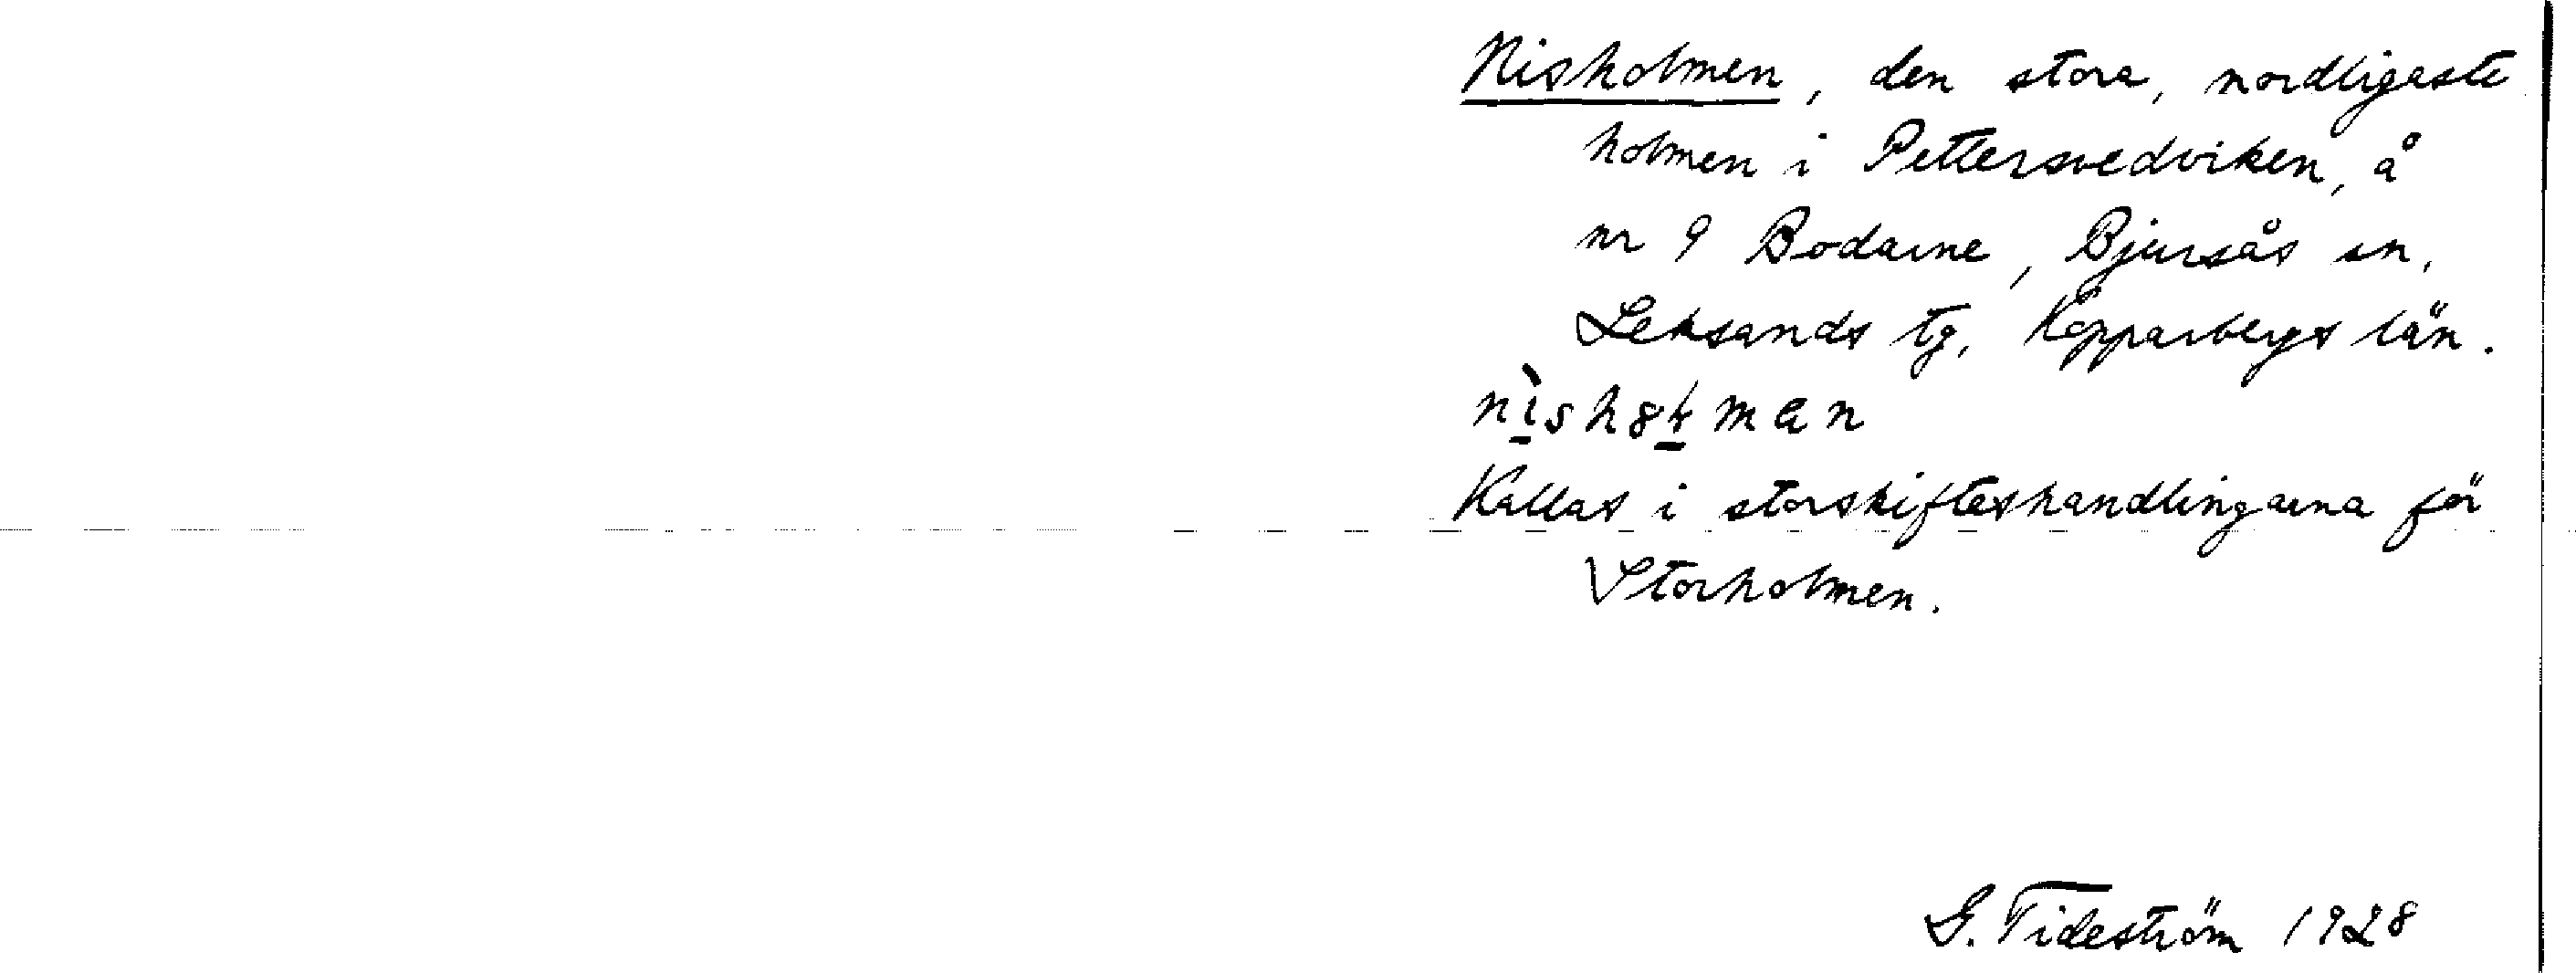 Nisholmen, den stora, nordligaste
holmen i Pettersvedviken, å
nr 9 Bodarne, Bjursås sn,
Leksands tg, Kopparbergs län.
Kallas i storskifteshandlingarna för
Storholmen.
G. Tideström 1928